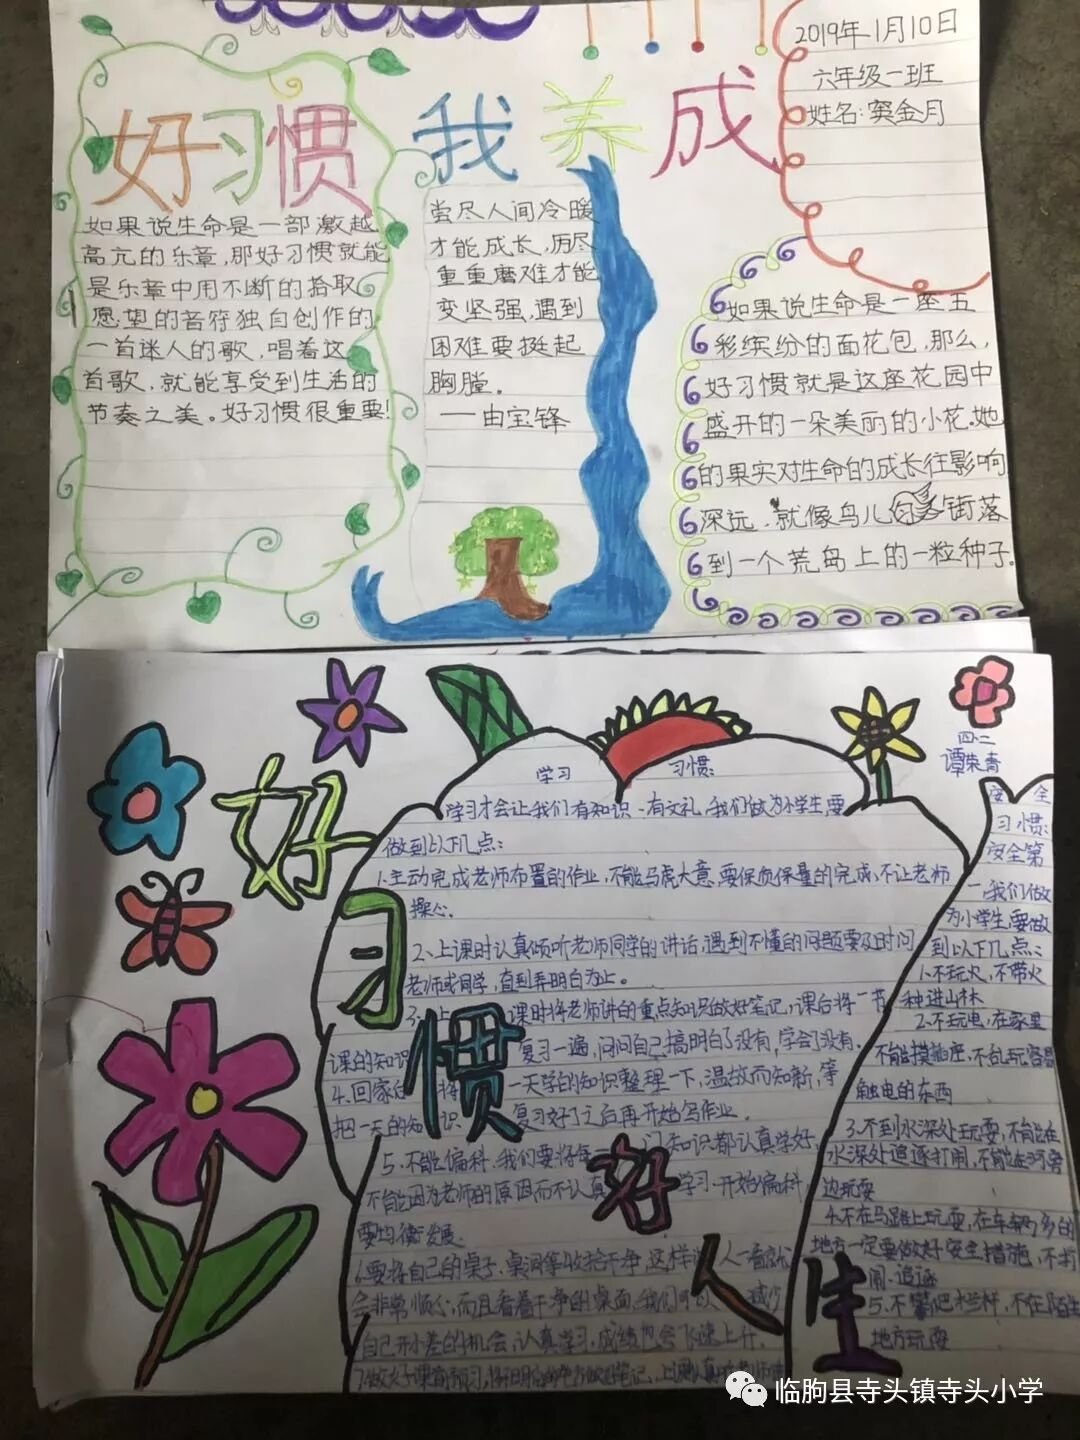 2019年1月10日
六年级一班
姓名:窦金月
好习惯 我养成
如果说生命是一部激越
高亢的乐章,那好习惯就能
是乐章中用不断的拾取
愿望的音符独自创作的
一首迷人的歌,唱着这
首歌,就能享受到生活的
节奏之美。好习惯很重要!
尝尽人间冷暖
才能成长,历尽
重重磨难才能
变坚强,遇到
困难要挺起
胸膛。
——由宝锋
如果说生命是一座五
彩缤纷的面花包,那么,
好习惯就是这座花园中
盛开的一朵美丽的小花.她
的果实对生命的成长往影响
深远.就像鸟儿
街落
到一个荒岛上的一粒种子.
四.二
谭荣青
好习惯好人生
学习 习惯:
学习才会让我们有知识、有文礼,我们做为小学生要
做到以下几点:
1.主动完成老师布置的作业,不能马虎大意.要保质保量的完成,不让老师
操心.
2、上课时认真倾听老师同学的讲话.遇到不懂的问题要及时问
老师或同学,直到弄明白为止。
课时将老师讲的重点知识做好笔记,课后将一节
课的知识 复习一遍,问问自己搞明白了没有,学会了没有.
4.回家后 将 一天学的知识整理一下,温故而知新,等
把一天的知识 复习好了之后再开始写作业.
5.不能偏科.我们要将每一 门知识都认真学好,
不能因为老师的原因而不认真 学习.开始偏科,
要均衡发展.
6.要将自己的桌子、桌洞等收拾干净,这样 人一看就
会非常顺心,而且看着干净的桌面,我们 减少
自己开小差的机会,认真学习,成绩也会飞速上升.
安全
习惯:
安全第
一,我们做
为小学生,要做
到以下几点:
1.不玩火,不带火
种进山林
2.不玩电,在家里
不能摸插座,不乱玩容易
触电的东西
3.不到水深处玩耍,不能在
水深处追逐打闹,不能在河旁
边玩耍
4.不在马路上玩耍,在车辆多的
地方一定要做好安全措施,不打
闹、追逐
地方玩耍
临朐县寺头镇寺头小学